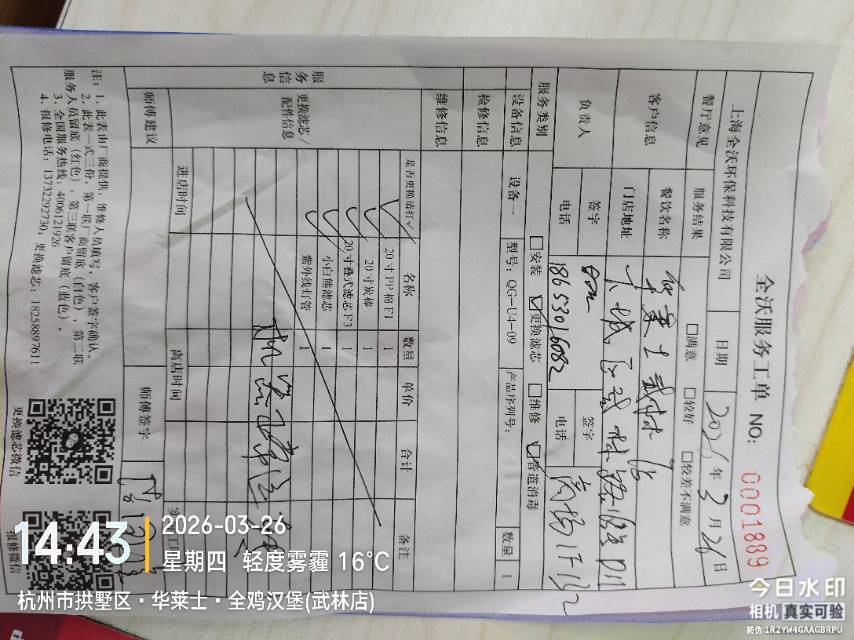 全沃服务工单 NO: 0001889
上海全沃环保科技有限公司 日期 2026年3月26日
餐厅意见 服务结果 □满意 □较好 □较差不满意
客户信息 餐饮名称 华莱士武林店
门店地址
负责人 签字 签字
电话 18653016082 电话
服务类别 □安装 ☑更换滤芯 □维修 ☑管道消毒
设备信息 设备一 型号：QG-U4-09 产品序列号： 数量 1
检修信息
维修信息
服务信息
更换滤芯/配件信息 是否更换请打✓ 名称 数量 单价 合计 备注
✓ 20寸PP棉F1 1
✓ 20寸炭棒 1
✓ 20寸叠式滤芯F3 1
✓ 小白熊滤芯 1
紫外线灯管 1
进店时间 离店时间
师傅建议 师傅签字
注：1、此表由厂商提供，维修人员填写，客户签字确认。
2、此表一式三份，第一联厂商留底（白色），第二联
服务人员留底（红色），第三联客户留底（蓝色）。
3、全国服务热线：4006121926
4、报修电话：13732292730，更换滤芯：18258897611
更换滤芯微信
报修微信
14:43
2026-03-26
星期四 轻度雾霾 16℃
杭州市拱墅区·华莱士·全鸡汉堡(武林店)
今日水印
相机 真实可验
防伪 1R2YW4GAAGBRPU